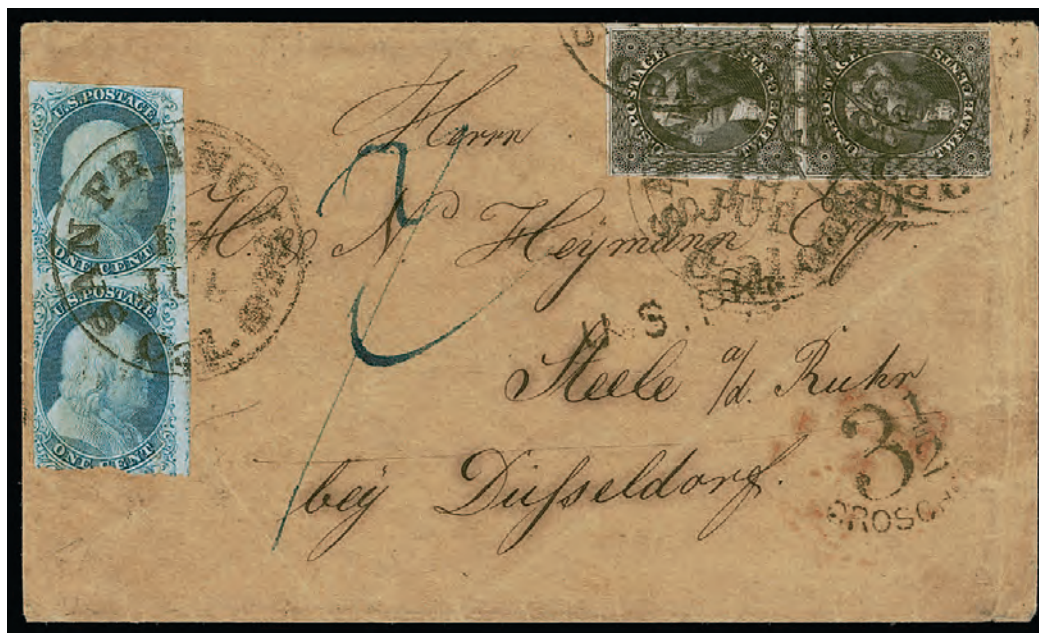 U.S. POSTAGE
ONE CENT
U.S. POSTAGE
ONE CENT
SAN FRANCISCO
1
JUL
CAL.
U.S. POSTAGE
U.S. POSTAGE
JUL
Herrn
H. N. Heymann
U.S.
Steele a/d. Ruhr
bey Düsseldorf.
3 1/2
GROSCH